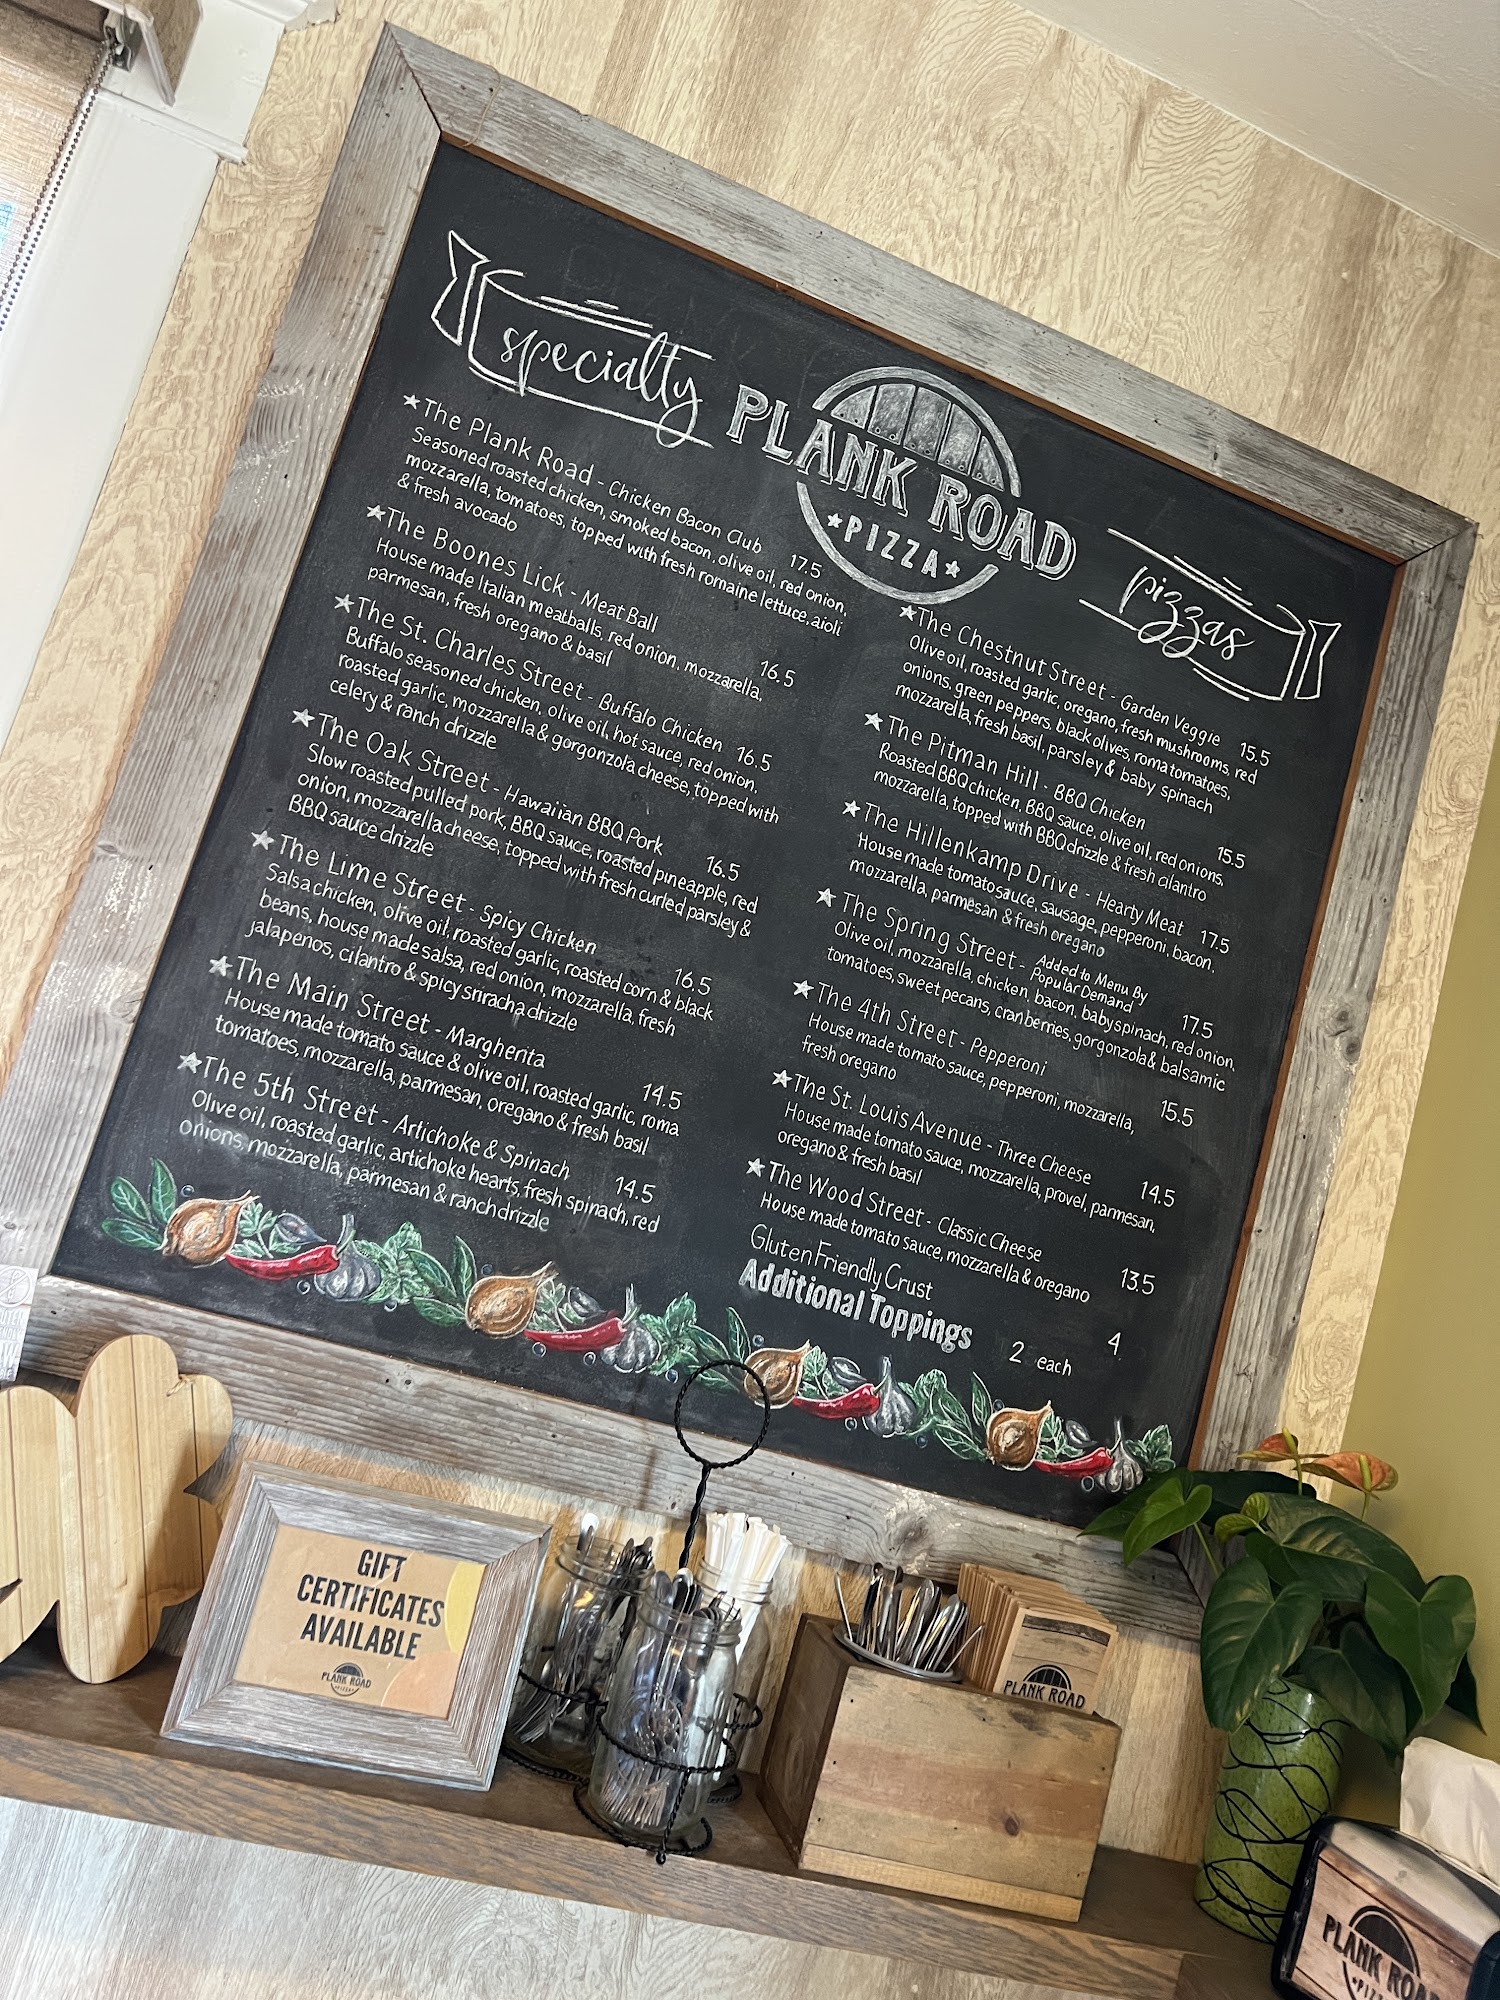 specialty
PLANK ROAD
★PIZZA★
pizzas
★The Plank Road - Chicken Bacon Club 17.5
Seasoned roasted chicken, smoked bacon, olive oil, red onion,
mozzarella, tomatoes, topped with fresh romaine lettuce, aioli
& fresh avocado
★The Boones Lick - Meat Ball 16.5
House made Italian meatballs, red onion, mozzarella,
parmesan, fresh oregano & basil
★The St. Charles Street - Buffalo Chicken 16.5
Buffalo seasoned chicken, olive oil, hot sauce, red onion,
roasted garlic, mozzarella & gorgonzola cheese, topped with
celery & ranch drizzle
★The Oak Street - Hawaiian BBQ Pork 16.5
Slow roasted pulled pork, BBQ sauce, roasted pineapple, red
onion, mozzarella cheese, topped with fresh curled parsley &
BBQ sauce drizzle
★The Lime Street - Spicy Chicken 16.5
Salsa chicken, olive oil, roasted garlic, roasted corn & black
beans, house made salsa, red onion, mozzarella, fresh
jalapenos, cilantro & spicy sriracha drizzle
★The Main Street - Margherita 14.5
House made tomato sauce & olive oil, roasted garlic, roma
tomatoes, mozzarella, parmesan, oregano & fresh basil
★The 5th Street - Artichoke & Spinach 14.5
Olive oil, roasted garlic, artichoke hearts, fresh spinach, red
onions, mozzarella, parmesan & ranch drizzle
★The Chestnut Street - Garden Veggie 15.5
Olive oil, roasted garlic, oregano, fresh mushrooms, red
onions, green peppers, black olives, roma tomatoes,
mozzarella, fresh basil, parsley & baby spinach
★The Pitman Hill - BBQ Chicken 15.5
Roasted BBQ chicken, BBQ sauce, olive oil, red onions,
mozzarella, topped with BBQ drizzle & fresh cilantro
★The Hillenkamp Drive - Hearty Meat 17.5
House made tomato sauce, sausage, pepperoni, bacon,
mozzarella, parmesan & fresh oregano
★The Spring Street - Added to Menu By
Popular Demand 17.5
Olive oil, mozzarella, chicken, bacon, baby spinach, red onion,
tomatoes, sweet pecans, cranberries, gorgonzola & balsamic
★The 4th Street - Pepperoni 15.5
House made tomato sauce, pepperoni, mozzarella,
fresh oregano
★The St. Louis Avenue - Three Cheese 14.5
House made tomato sauce, mozzarella, provel, parmesan,
oregano & fresh basil
★The Wood Street - Classic Cheese 13.5
House made tomato sauce, mozzarella & oregano
Gluten Friendly Crust 4
Additional Toppings 2 each
GIFT
CERTIFICATES
AVAILABLE
PLANK ROAD
PIZZA
PLANK ROAD
PLANK ROAD